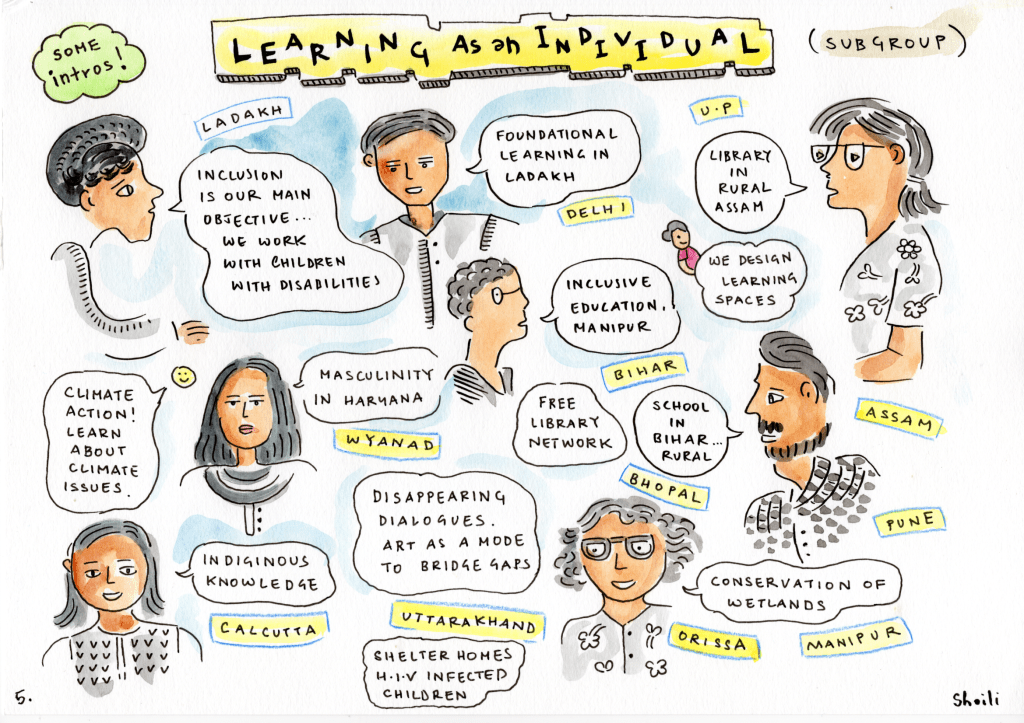 SOME
intros!
LEARNING As an INDIVIDUAL
(SUBGROUP)
LADAKH
INCLUSION
IS OUR MAIN
OBJECTIVE...
WE WORK
WITH CHILDREN
WITH DISABILITIES
FOUNDATIONAL
LEARNING IN
LADAKH
DELHI
U.P
LIBRARY
IN
RURAL
ASSAM
WE DESIGN
LEARNING
SPACES
INCLUSIVE
EDUCATION.
MANIPUR
BIHAR
CLIMATE
ACTION!
LEARN
ABOUT
CLIMATE
ISSUES.
MASCULINITY
IN HARYANA
WYANAD
FREE
LIBRARY
NETWORK
SCHOOL
IN
BIHAR...
RURAL
ASSAM
BHOPAL
PUNE
DISAPPEARING
DIALOGUES.
ART AS A MODE
TO BRIDGE GAPS
INDIGINOUS
KNOWLEDGE
CALCUTTA
UTTARAKHAND
CONSERVATION OF
WETLANDS
ORISSA
MANIPUR
SHELTER HOMES
H.I.V INFECTED
CHILDREN
5.
Shoili